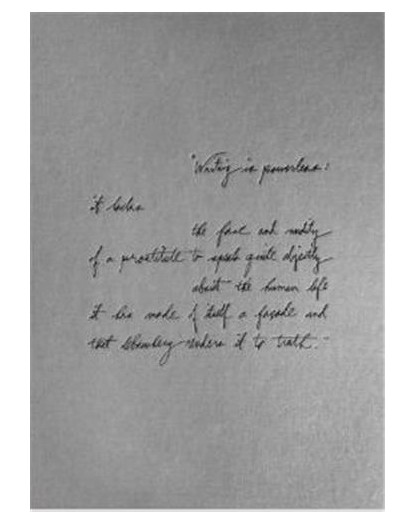 "Writing is powerless:
it lacks
the face and nudity
of a prostitute to speak quite
about the human life
it has made of itself a façade and
that it to truth."